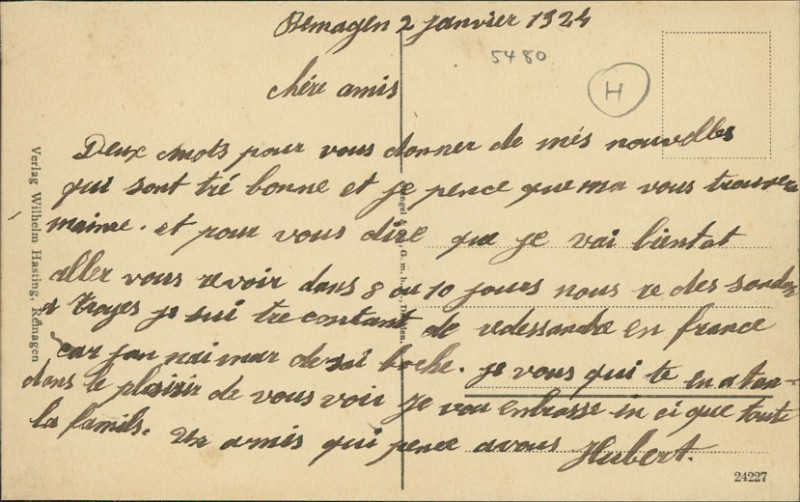 Remagen 2 janvier 1924
5480
H
chére amis
Deux mots pour vous donner de més nouvelles
qui sont tré bonne et je pence que ma vous trouvera
maime. et pour vous dire que je vai bientot
aller vous revoir dans 8 ou 10 jours nous re des sandon
a troyes je sui tre contant de redessandre en france
car jan nai mar de sai boche. je vous qui te en aten-
dans le plaizir de vous voir je vou enbrasse en ci que toute
la famils. un amis qui pence avous Hubert.
Verlag Wilhelm Hasting, Remagen
G. m. b.
24227